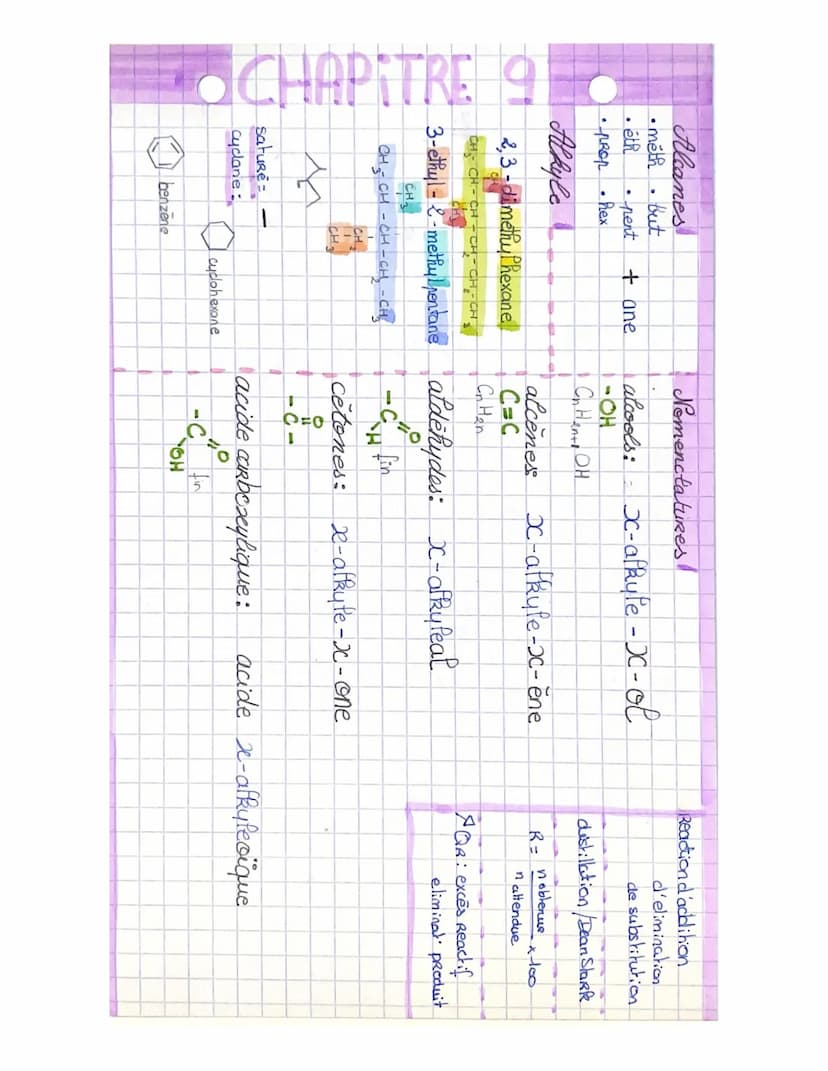 CHAPiTRE 9
Alcanes
• méth • but
• éth • pent + ane
• prop • hex
Alkyle
2,3-diméthylhexane
CH3-CH-CH-CH2-CH2-CH3
CH3
CH3
3-ethyl-2-methylpentane
CH3
CH3-CH-CH-CH2-CH3
CH2
CH3
saturé = —
cyclane :
cyclohexane
benzène
Nomenclatures
alcools : x-alkyle-x-ol
-OH
CnH2n+1OH
alcènes x-alkyle-x-ène
C=C
CnH2n
aldéhydes : x-alkyleal
-C=O
H fin
cétones : x-alkyle-x-one
O
-C-
acide carboxylique : acide x-alkyleoïque
-C=O
OH fin
Réaction d'addition
d'elimination
de substitution
distillation/Dean Stark
R = n obtenue / n attendue x 100
↗ QR : excès reactif
eliminat° produit